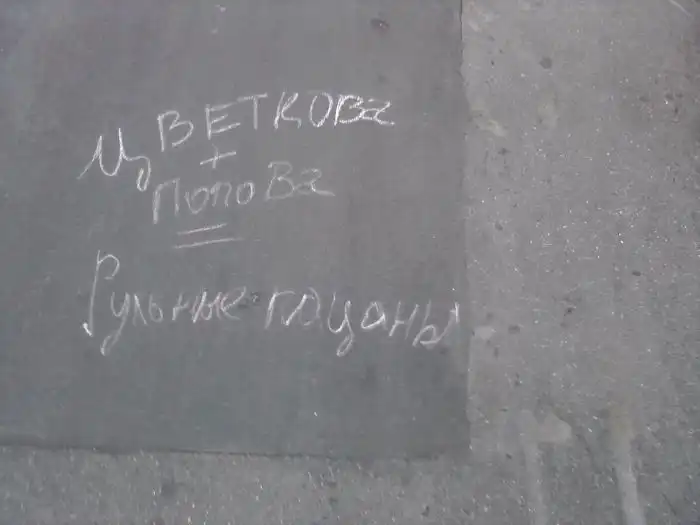 Цветкова
+
Попова
=
Рульные пацаны